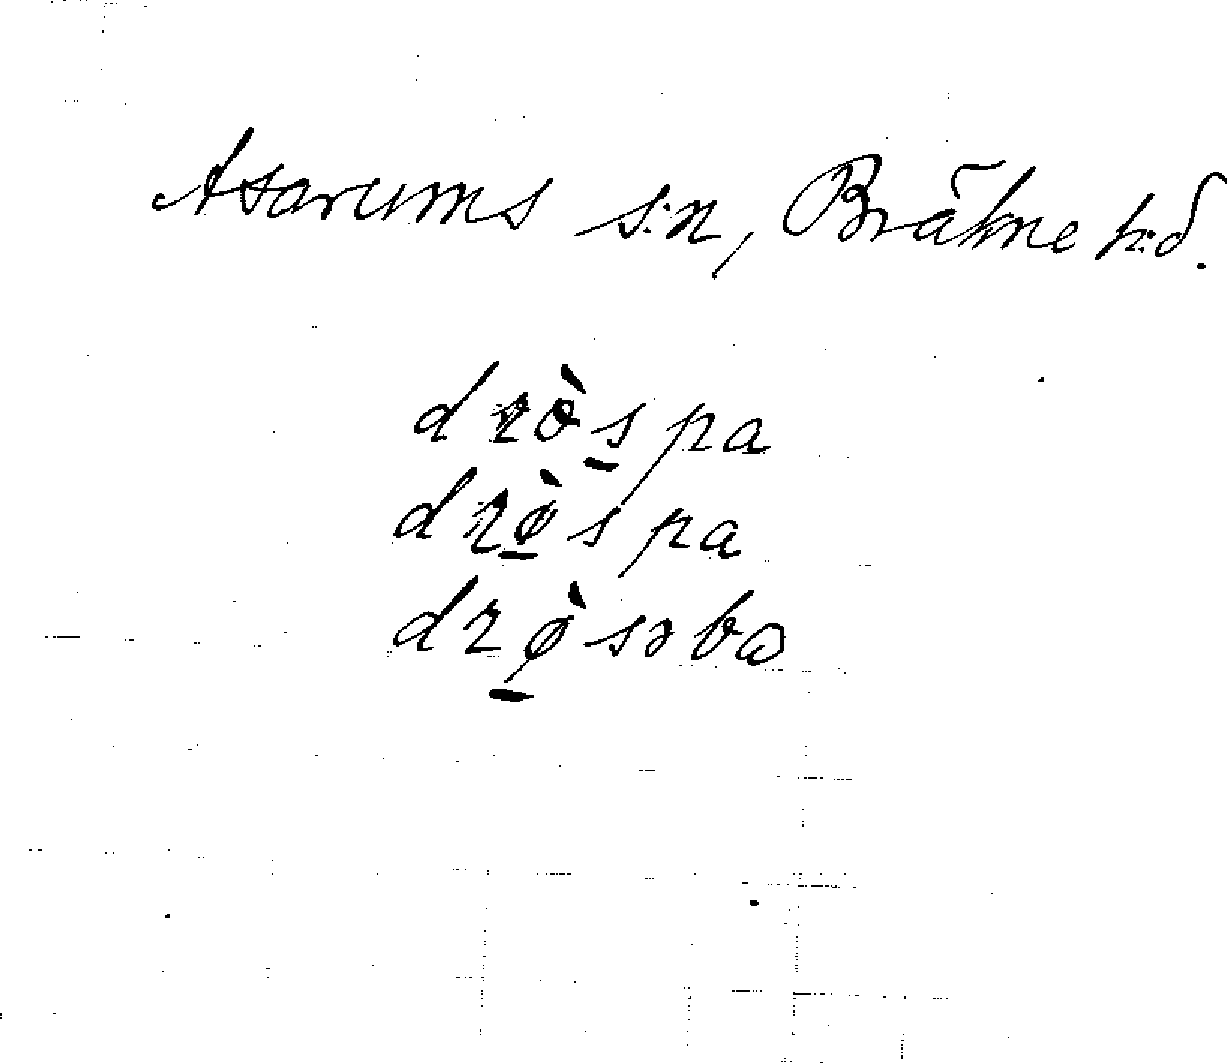 Asarums s:n, Bräkne h:d.
drò̀s̲pa
drø̲̀spa
drø̲̀səba